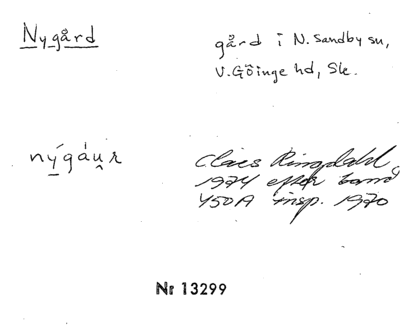 Nygård
gård i N. Sandby sn,
V. Göinge hd, Sk.
nýgáu̯ʀ
Claes Ringdahl
1974 efter band
450A insp. 1970
Nr 13299